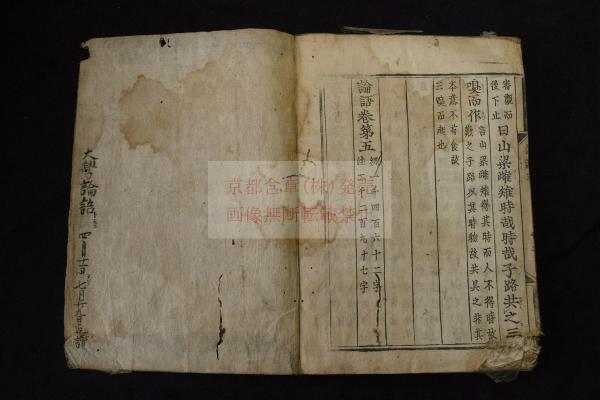 審觀而
後下止
曰山梁雌雉時哉時哉子路共之三
嗅而作
言山梁雌雉得其時而人不得時故
歎之子路以其時物故共具之非其
本意不苟食故
三嗅而起也
論語卷第五
經一千四百六十二字
註二千二百九十七字
大學論語
京都含章(株)発売
画像無断転載禁止